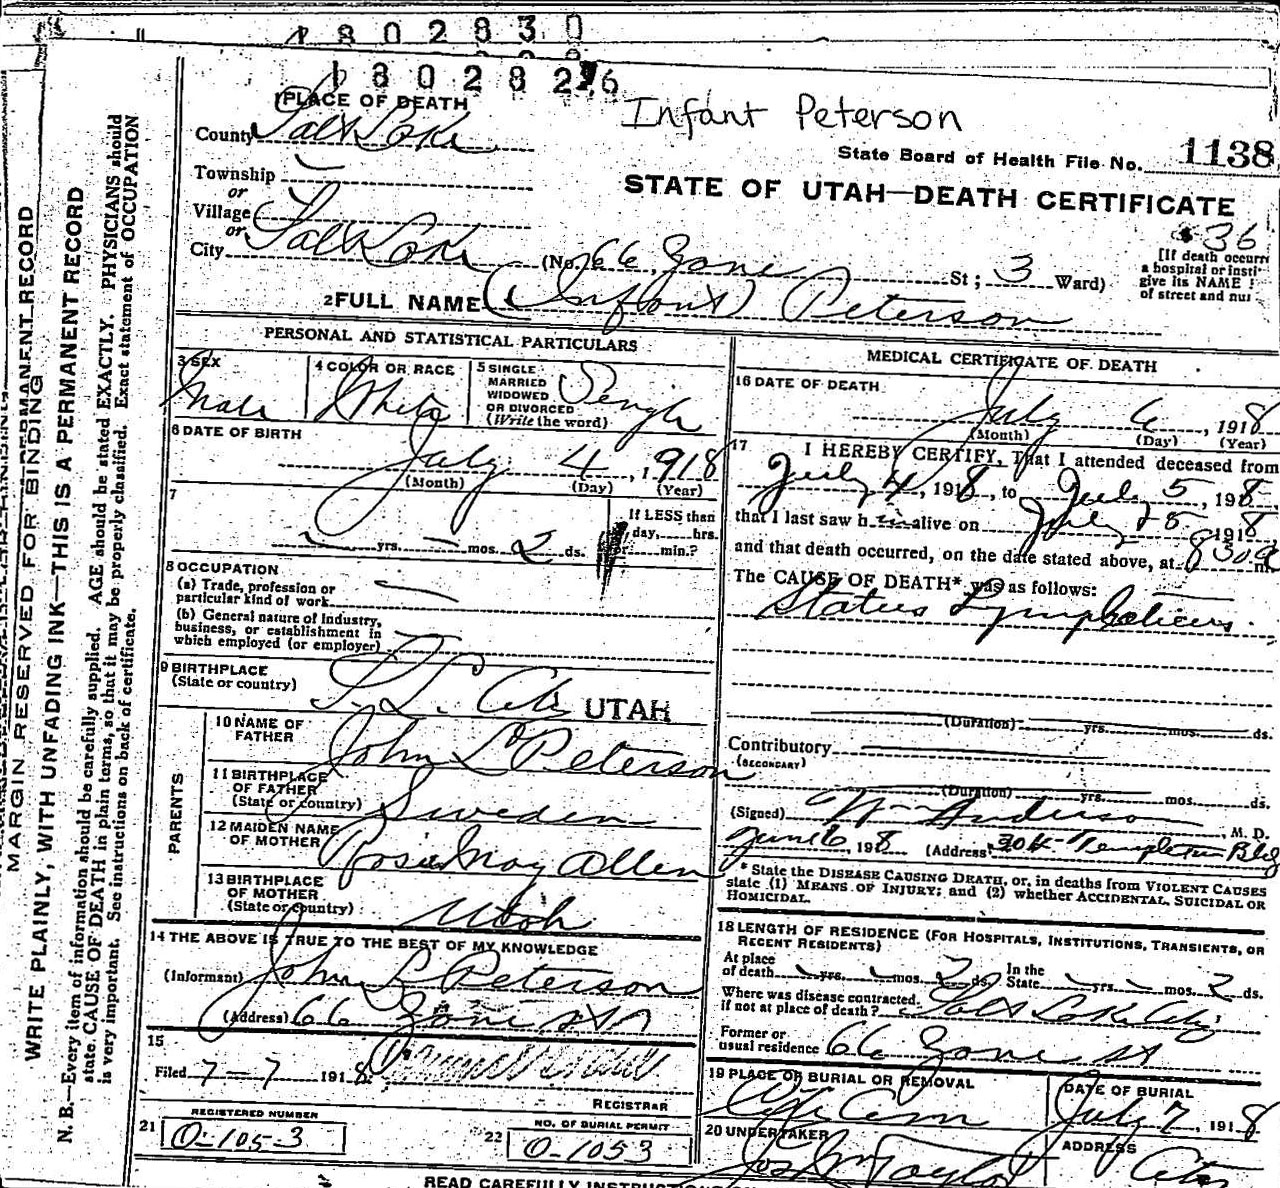 1802830
1802826
Infant Peterson
1 PLACE OF DEATH
County Salt Lake
State Board of Health File No. 1138
Township
or
Village
or
City Salt Lake
STATE OF UTAH—DEATH CERTIFICATE
36
[If death occurr
a hospital or insti-
give its NAME
of street and nu
(No. 66 Zane St; 3 Ward)
2 FULL NAME (Infant) Peterson
PERSONAL AND STATISTICAL PARTICULARS
3 SEX
Male
4 COLOR OR RACE
White
5 SINGLE
MARRIED
WIDOWED
OR DIVORCED
(Write the word)
Single
6 DATE OF BIRTH
July 4, 1918
(Month) (Day) (Year)
7
yrs. mos. 2 ds.
If LESS than
day, hrs.
or min.?
8 OCCUPATION
(a) Trade, profession or
particular kind of work
(b) General nature of industry,
business, or establishment in
which employed (or employer)
9 BIRTHPLACE
(State or country)
S. L. City UTAH
PARENTS
10 NAME OF
FATHER
John L Peterson
11 BIRTHPLACE
OF FATHER
(State or country)
Sweden
12 MAIDEN NAME
OF MOTHER
Rosie May Allen
13 BIRTHPLACE
OF MOTHER
(State or country)
Utah
14 THE ABOVE IS TRUE TO THE BEST OF MY KNOWLEDGE
(Informant) John L Peterson
(Address) 66 Zane
15
Filed 7-7 1918
REGISTRAR
REGISTERED NUMBER
21 O-1053
NO. OF BURIAL PERMIT
22 O-1053
MEDICAL CERTIFICATE OF DEATH
16 DATE OF DEATH
July 6, 1918
(Month) (Day) (Year)
17 I HEREBY CERTIFY, That I attended deceased from
July 4, 1918, to July 5, 1918
that I last saw h im alive on July 5 1918
and that death occurred, on the date stated above, at 830a m.
The CAUSE OF DEATH* was as follows:
Status Lymphaticus.
(Duration) yrs. mos. ds.
Contributory
(SECONDARY)
(Duration) yrs. mos. ds.
(Signed) Anderson, M. D.
June 6, 1918 (Address) Templeton Bldg
* State the DISEASE CAUSING DEATH, or, in deaths from VIOLENT CAUSES
state (1) MEANS OF INJURY; and (2) whether ACCIDENTAL, SUICIDAL OR
HOMICIDAL.
18 LENGTH OF RESIDENCE (FOR HOSPITALS, INSTITUTIONS, TRANSIENTS, OR
RECENT RESIDENTS)
At place
of death yrs. mos. 2 ds. In the
State yrs. mos. 2 ds.
Where was disease contracted,
if not at place of death? Salt Lake City
Former or
usual residence 66 Zane st
19 PLACE OF BURIAL OR REMOVAL
City Cem
DATE OF BURIAL
July 7, 1918
20 UNDERTAKER
Taylor
ADDRESS
City
READ CAREFULLY INSTRUCTIONS
MARGIN RESERVED FOR BINDING
PERMANENT RECORD
WRITE PLAINLY, WITH UNFADING INK—THIS IS A PERMANENT RECORD
N. B.—Every item of information should be carefully supplied. AGE should be stated EXACTLY. PHYSICIANS should
state CAUSE OF DEATH in plain terms, so that it may be properly classified. Exact statement of OCCUPATION
is very important. See instructions on back of certificate.